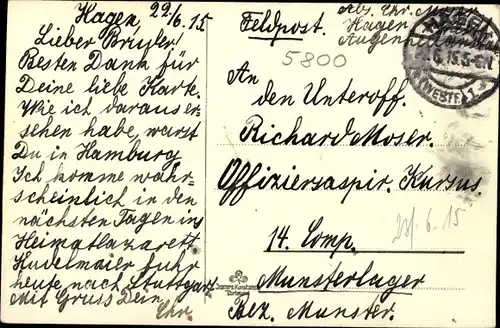 Hagen, 22/6.15
Lieber Bruder!
Besten Dank für
Deine liebe Karte.
Wie ich daraus er-
sehen habe, warst
Du in Hamburg
Ich komme wahr-
scheinlich in den
nächsten Tagen ins
Heimatlazarett
Huvelmaier fuhr
heute nach Stuttgart
Mit Gruss Dein
Chr.
Feldpost.
Abs. Chr. Moser
Hagen
5800
HAGEN
6.15.5-6N
(WESTF.) 1
An
den Unteroff.
Richard Moser.
Offiziersaspir. Kursus
14. Comp.
Munsterlager
Bez. Munster.
23/6.15
Dortmund